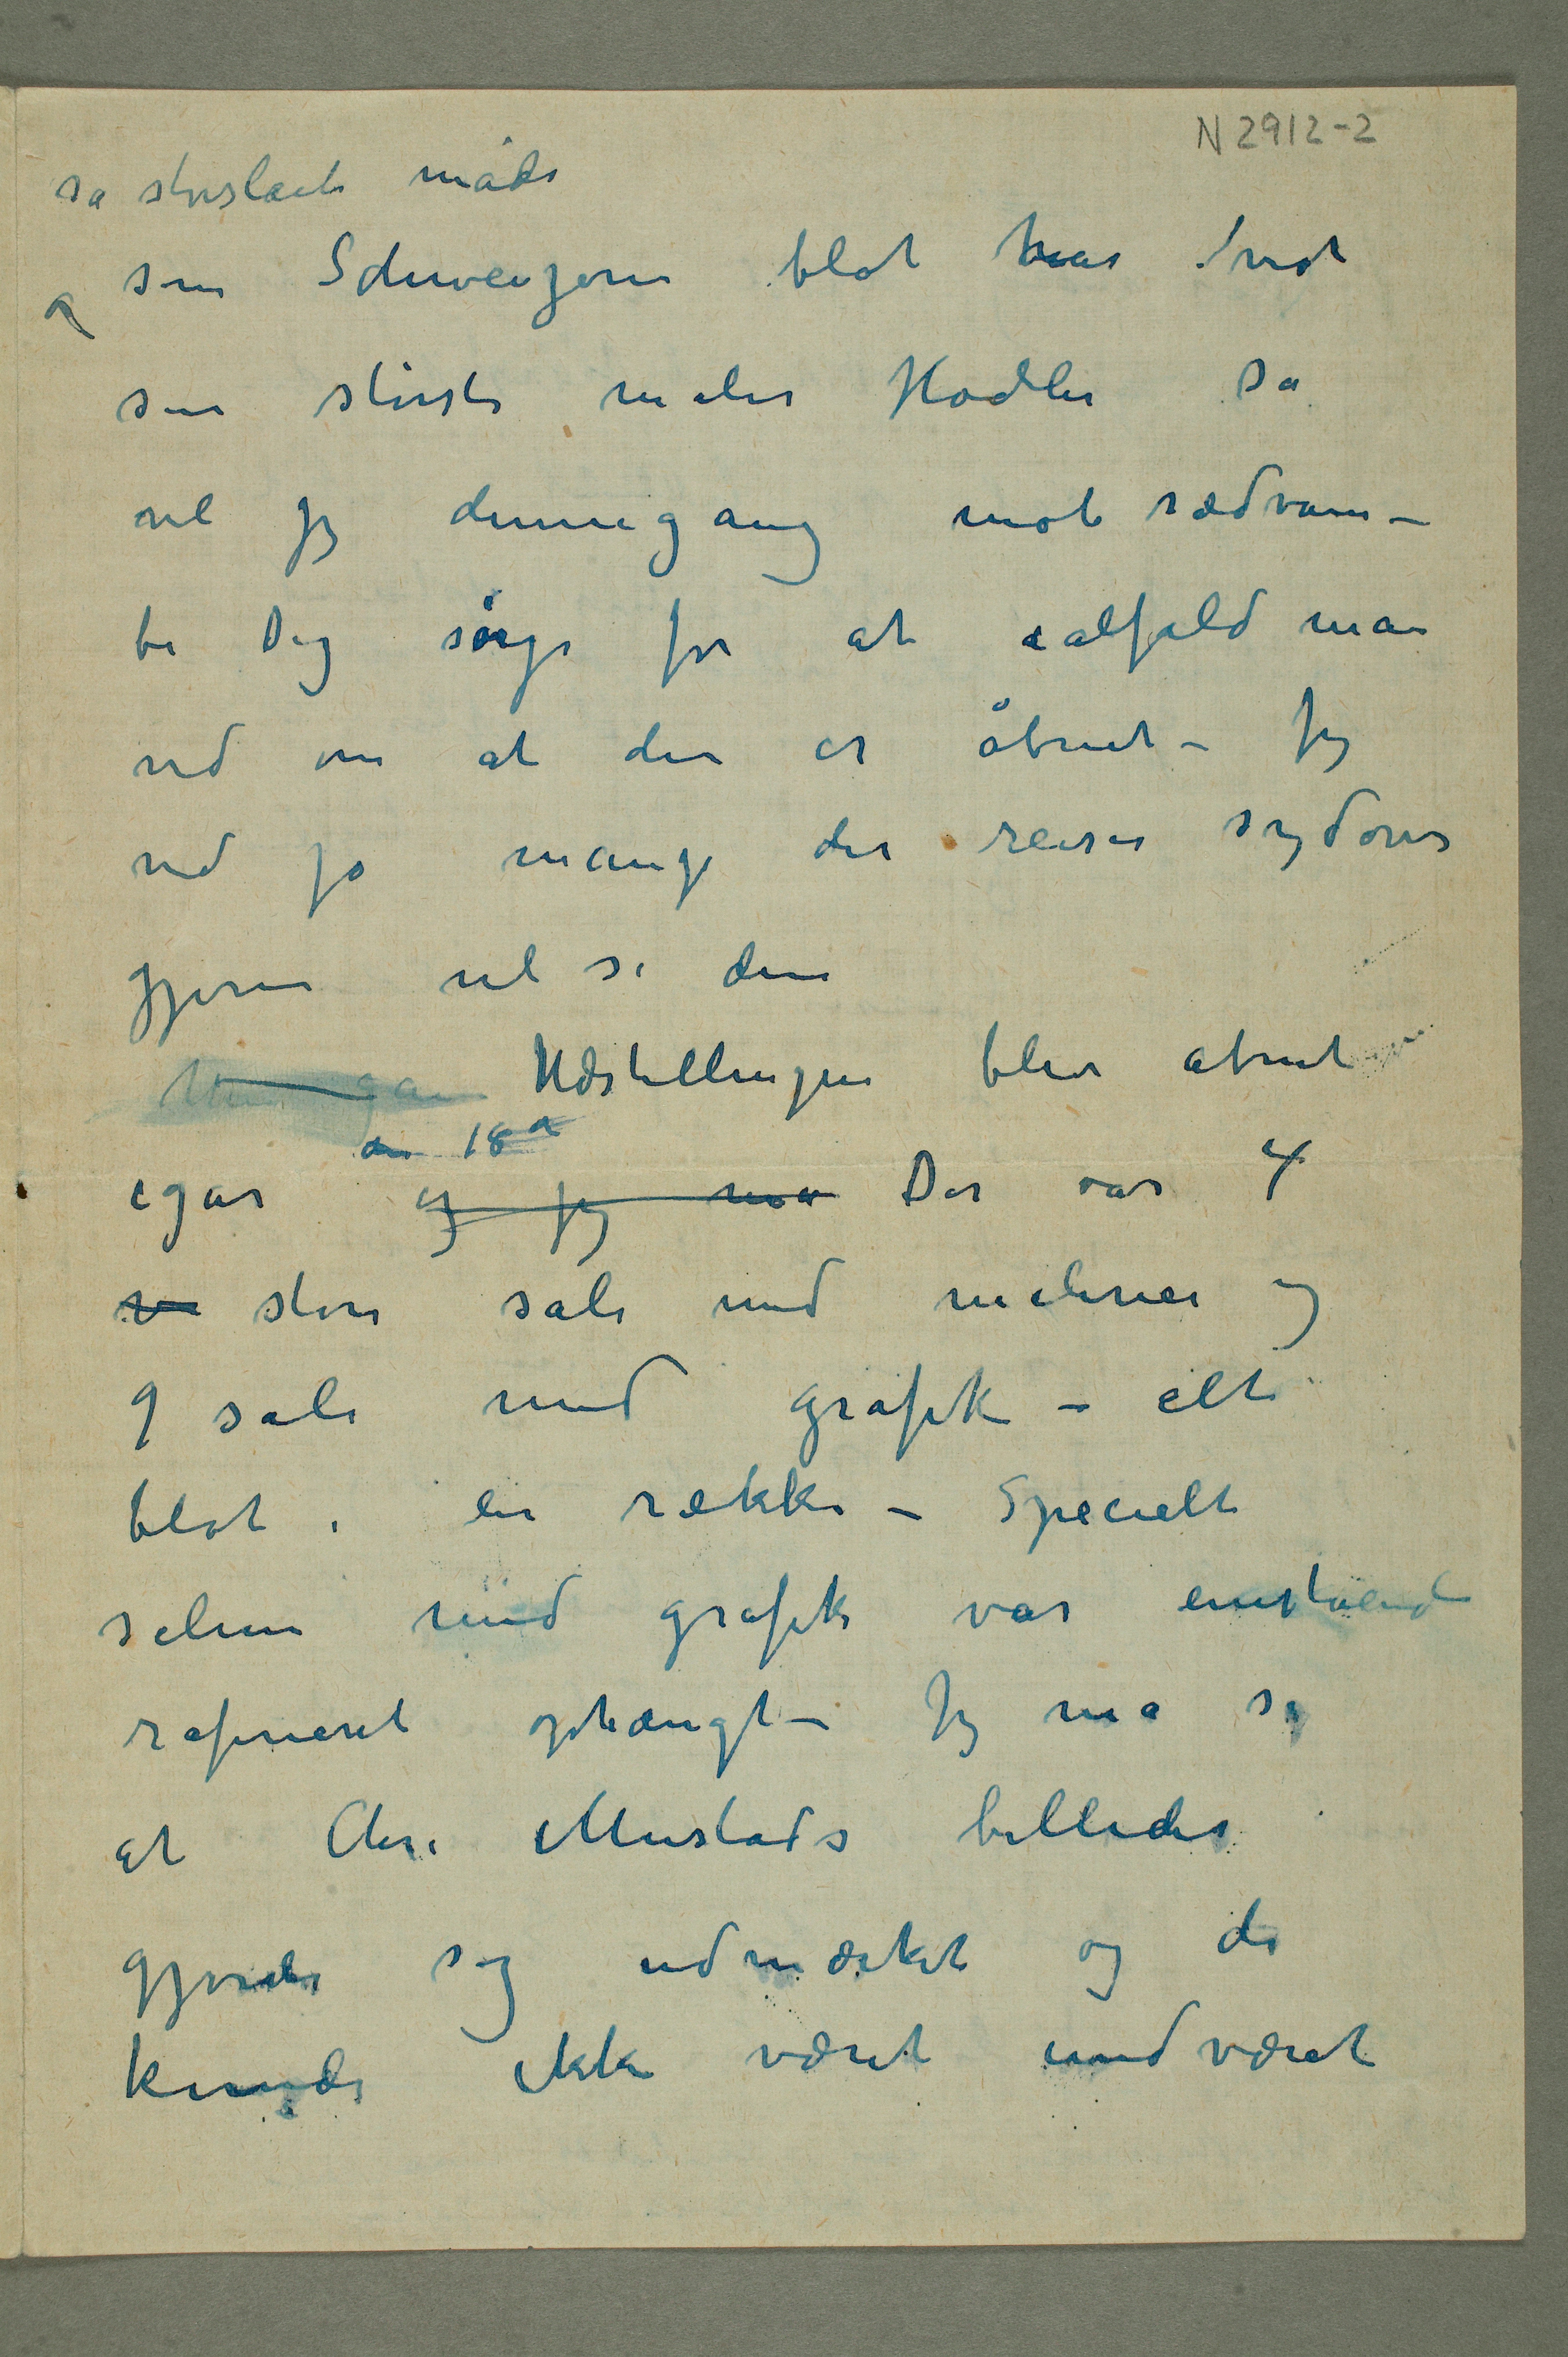 N 2912-2
så storslaet måde
og som Schweizerne blot har vist
sin störste maler Hodler så
vil jeg dennegang mot sædvane –
be Dig sörge for at ialfald man
ved om at den er åbnet – Jeg
ved jo mange der reiser sydover
gjerne vil se den
Udstillingen blev åbnet
den 18d
igår og jeg må Der var 4
store sale med malerier og
9 sale med grafik – alt
blot i en række – Specielt
salene med grafik var enestående
rafineret ophængt – Jeg må si
at Chr. Mustads billeder
gjorde sig udmærket og de
kunde ikke været undværet